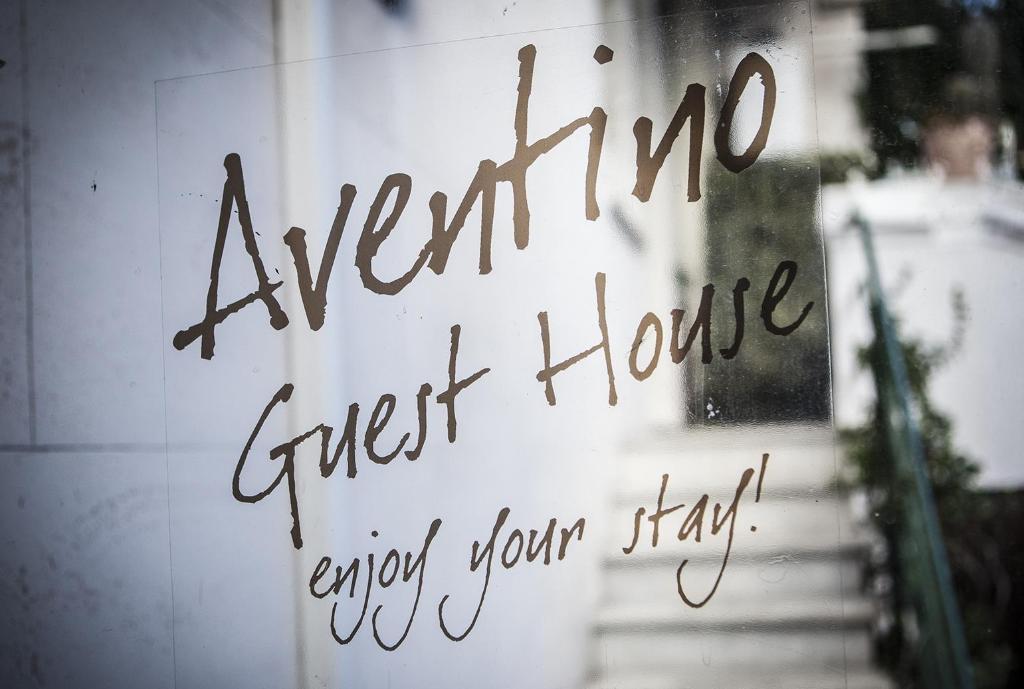 Aventino
Guest House
enjoy your stay!